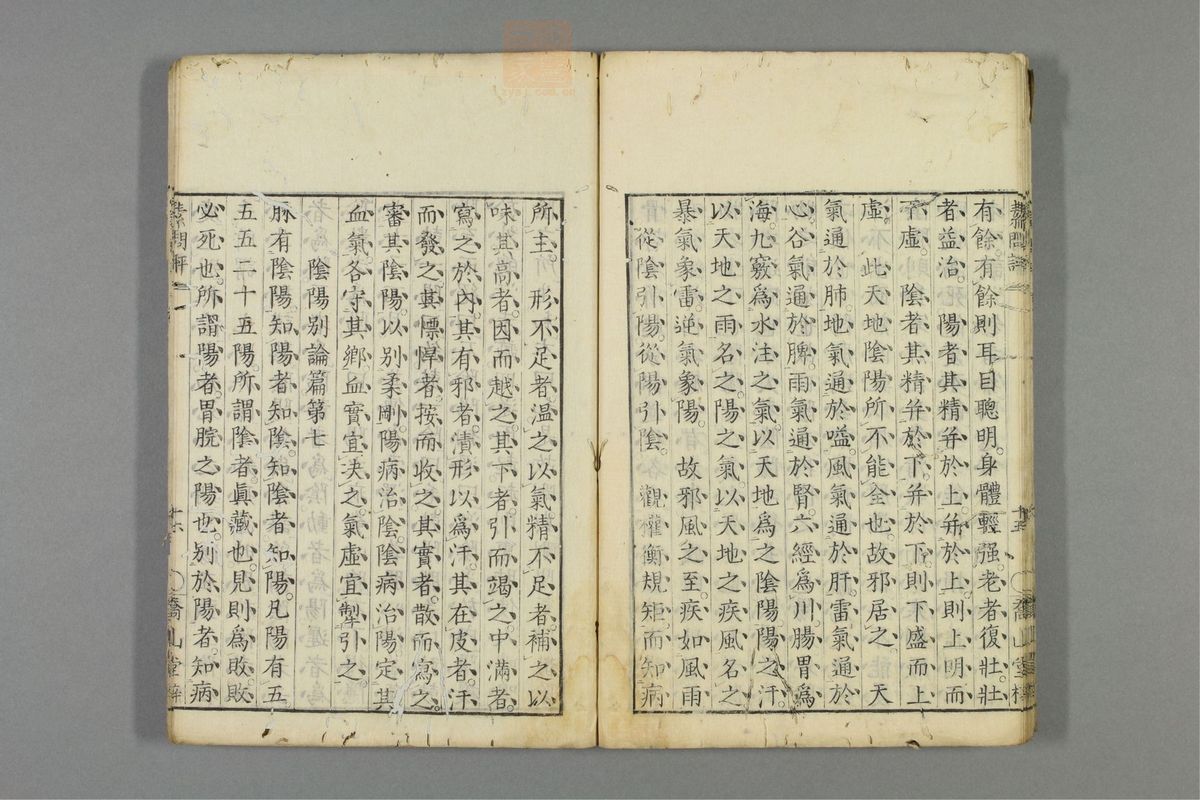 有餘有餘則耳目聰明身體輕强老者復壯壯
者益治陽者其精并於上并於上則上明而
下虛陰者其精并於下并於下則下盛而上
虛此天地陰陽所不能全也故邪居之天
氣通於肺地氣通於嗌風氣通於肝雷氣通於
心谷氣通於脾雨氣通於腎六經爲川腸胃爲
海九竅爲水注之氣以天地爲之陰陽陽之汗
以天地之雨名之陽之氣以天地之疾風名之
暴氣象雷逆氣象陽故邪風之至疾如風雨
從陰引陽從陽引陰觀權衡規矩而知病
十五
喬山堂梓
所主形不足者温之以氣精不足者補之以
味其高者因而越之其下者引而竭之中滿者
寫之於內其有邪者漬形以爲汗其在皮者汗
而發之其慓悍者按而收之其實者散而寫之
審其陰陽以别柔剛陽病治陰陰病治陽定其
血氣各守其鄉血實宜决之氣虛宜掣引之
陰陽别論篇第七
脉有陰陽知陽者知陰知陰者知陽凡陽有五
五五二十五陽所謂陰者眞藏也見則爲敗敗
必死也所謂陽者胃脘之陽也别於陽者知病
喬山堂梓